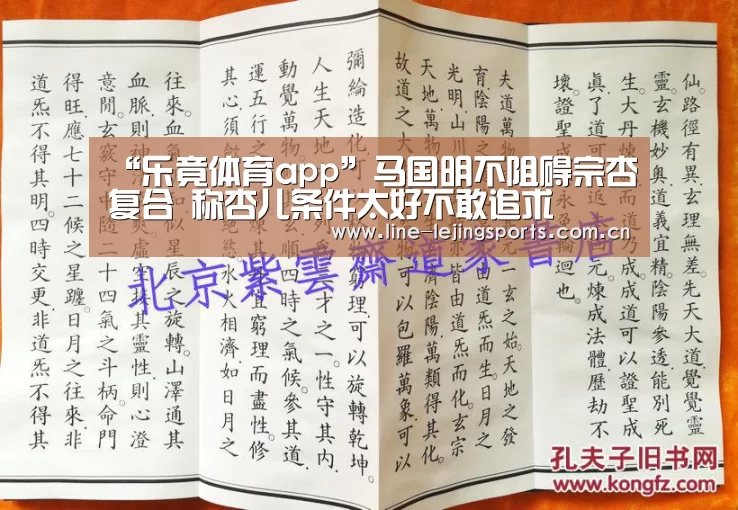 “乐竟体育app”马国明不阻碍宗杏
复合 称杏儿条件太好不敢追求
www.line-lejingsports.com.cn
仙。路徑有异。玄理無差。先天大道覺覺靈
靈。玄機妙奧。道義宜精。陰陽參透。能別死
生。大丹煉 而道乃成。成道可以證聖成
眞。了道可 元。煉成法體。歷劫不
壞。證聖成 輪迴也。
夫道萬物 元一玄之始。天地之發
育。陰陽之 由道炁而生。日月之
光明。山川 亦皆由道炁而化。玄宗
天地。萬物 濟陰陽。萬類得其化。
故道之大 物。可以包羅萬象。可以
彌綸造化。可 窮理。可以旋轉乾坤。
人生天地 才之一。性守其内。
動覺萬物 順四時之氣候。參其道
運五行之 宜窮理而盡性。修
其心。須 絕慾。水火相濟。如日月之
往來。血氣 似星辰之旋轉。山澤通其
血脈則神 虛空接其靈性。則心澄
意閒。玄竅守中。隨二十四氣之斗柄。命門
得旺。應七十二候之星躔。日月之往來。非
道炁不得其明。四時交更。非道炁不得其
北京紫雲齋道家書店
孔夫子旧书网
kongfz.com